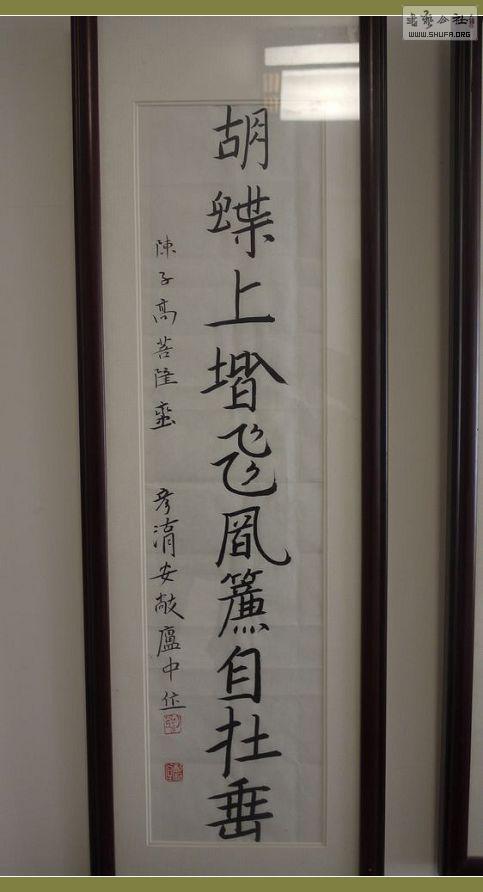 書藝公社
WWW.SHUFA.ORG
胡蝶上堦飛風簾自在垂
陳子高菩薩蠻 彥涓安敝廬中作